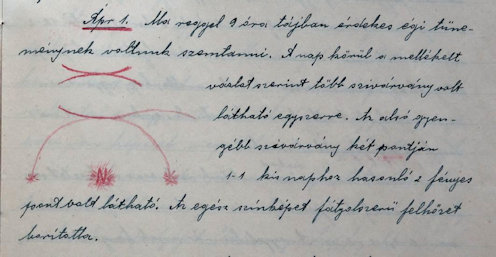 Ápr 1. Ma reggel 9 óra tájban érdekes égi tüne-
ménynek voltunk szemtanui. A nap körül a mellékelt
vázlat szerint több szivárvány volt
látható egyszerre. Az alsó gyen-
gébb szivárvány két pontján
1-1 kis naphoz hasonló 2 fényes
pont volt látható. Az egész színképet fátyolszerü felhőzet
borította.
N